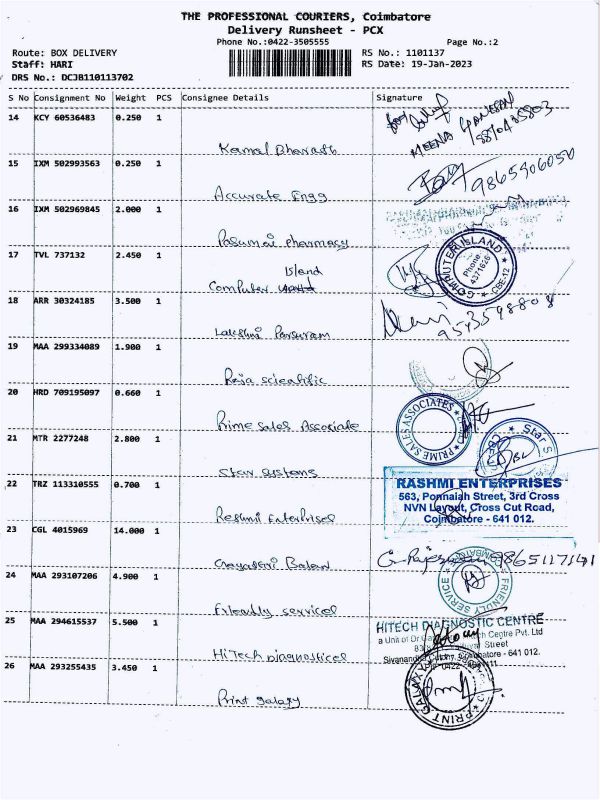 THE PROFESSIONAL COURIERS, Coimbatore
Delivery Runsheet - PCX
Phone No.:0422-3505555 Page No.:2
Route: BOX DELIVERY RS No.: 1101137
Staff: HARI RS Date: 19-Jan-2023
DRS No.: DCJB110113702
S No Consignment No Weight PCS Consignee Details Signature
14 KCY 60536483 0.250 1
MEENA GANESAN
Kamal Bharath
15 IXM 502993563 0.250 1
9865906050
Accurate Engg
16 IXM 502969845 2.000 1
Pasumai pharmacy
17 TVL 737132 2.450 1
COMPUTER ISLAND
Phone:
4371626
CBE-12
Island
Computer
18 ARR 30324185 3.500 1
9543598808
Lakshmi Parsuram
19 MAA 299334089 1.900 1
Raja scientific
20 HRD 709195097 0.660 1
PRIME SALES ASSOCIATES
Prime Sales Associate
21 MTR 2277248 2.800 1
Star S
Star Systems
22 TRZ 113310555 0.700 1
RASHMI ENTERPRISES
563, Ponnaiah Street, 3rd Cross
NVN Layout, Cross Cut Road,
Coimbatore - 641 012.
Reshmi Enterprises
23 CGL 4015969 14.000 1
9865117141
Gayatri Balan
24 MAA 293107206 4.900 1
FRIENDLY SERVICE
Friendly services
25 MAA 294615537 5.500 1
HITECH DIAGNOSTIC CENTRE
a Unit of Dr. Centre Pvt. Ltd
Street
641 012.
HiTech Diagnostices
26 MAA 293255435 3.450 1
PRINT GALAXY
Print galaxy